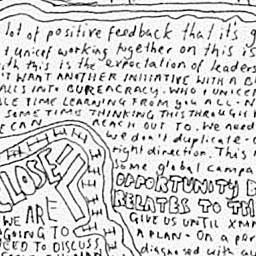 lot of positive feedback that it's g
t Unicef working together on this is
ith this is the expectation of leaders
T WANT ANOTHER INITIATIVE WITH A B
ALLS INTO BUREACRACY. WHO + UNICEF
LE TIME LEARNING FROM YOU ALL - N
SOME TIME THINKING THIS THROUGH
E CAN REACH OUT TO. We need
we don't duplicate -
right direction. This i
some global campa
OPPORTUNITY B
RELATES TO TH
GIVE US UNTIL XMA
A PLAN - On a per
diagnosed with au
CLOSE
WE ARE
GOING TO
NEED TO DISCUSS